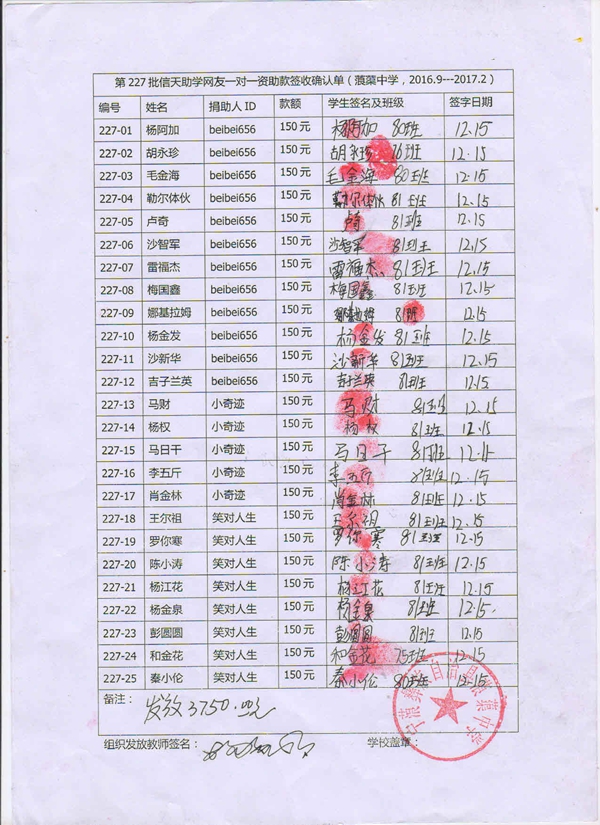 第 227 批信天助学网友一对一资助款签收确认单（蒗蕖中学，2016.9---2017.2）
编号 姓名 捐助人 ID 款额 学生签名及班级 签字日期
227-01 杨阿加 beibei656 150 元 杨阿加 80班 12.15
227-02 胡永珍 beibei656 150 元 胡永珍 76班 12.15
227-03 毛金海 beibei656 150 元 毛金海 80班 12.15
227-04 勒尔体伙 beibei656 150 元 勒尔体伙 81班 12.15
227-05 卢奇 beibei656 150 元 卢奇 81班 12.15
227-06 沙智军 beibei656 150 元 沙智军 81班 12.15
227-07 雷福杰 beibei656 150 元 雷福杰 81班 12.15
227-08 梅国鑫 beibei656 150 元 梅国鑫 81班 12.15
227-09 娜基拉姆 beibei656 150 元 娜基拉姆 81班 12.15
227-10 杨金发 beibei656 150 元 杨金发 81班 12.15
227-11 沙新华 beibei656 150 元 沙新华 81班 12.15
227-12 吉子兰英 beibei656 150 元 吉子兰英 81班 12.15
227-13 马财 小奇迹 150 元 马财 81班 12.15
227-14 杨权 小奇迹 150 元 杨权 81班 12.15
227-15 马日干 小奇迹 150 元 马日干 81班 12.15
227-16 李五斤 小奇迹 150 元 李五斤 81班 12.15
227-17 肖金林 小奇迹 150 元 肖金林 81班 12.15
227-18 王尔祖 笑对人生 150 元 王尔祖 81班 12.15
227-19 罗你寒 笑对人生 150 元 罗你寒 81班 12.15
227-20 陈小涛 笑对人生 150 元 陈小涛 81班 12.15
227-21 杨江花 笑对人生 150 元 杨江花 81班 12.15
227-22 杨金泉 笑对人生 150 元 杨金泉 81班 12.15.
227-23 彭圆圆 笑对人生 150 元 彭圆圆 81班 12.15
227-24 和金花 笑对人生 150 元 和金花 75班 12.15
227-25 秦小伦 笑对人生 150 元 秦小伦 80班 12.15
备注： 发放3750.
组织发放教师签名： 学校盖章：